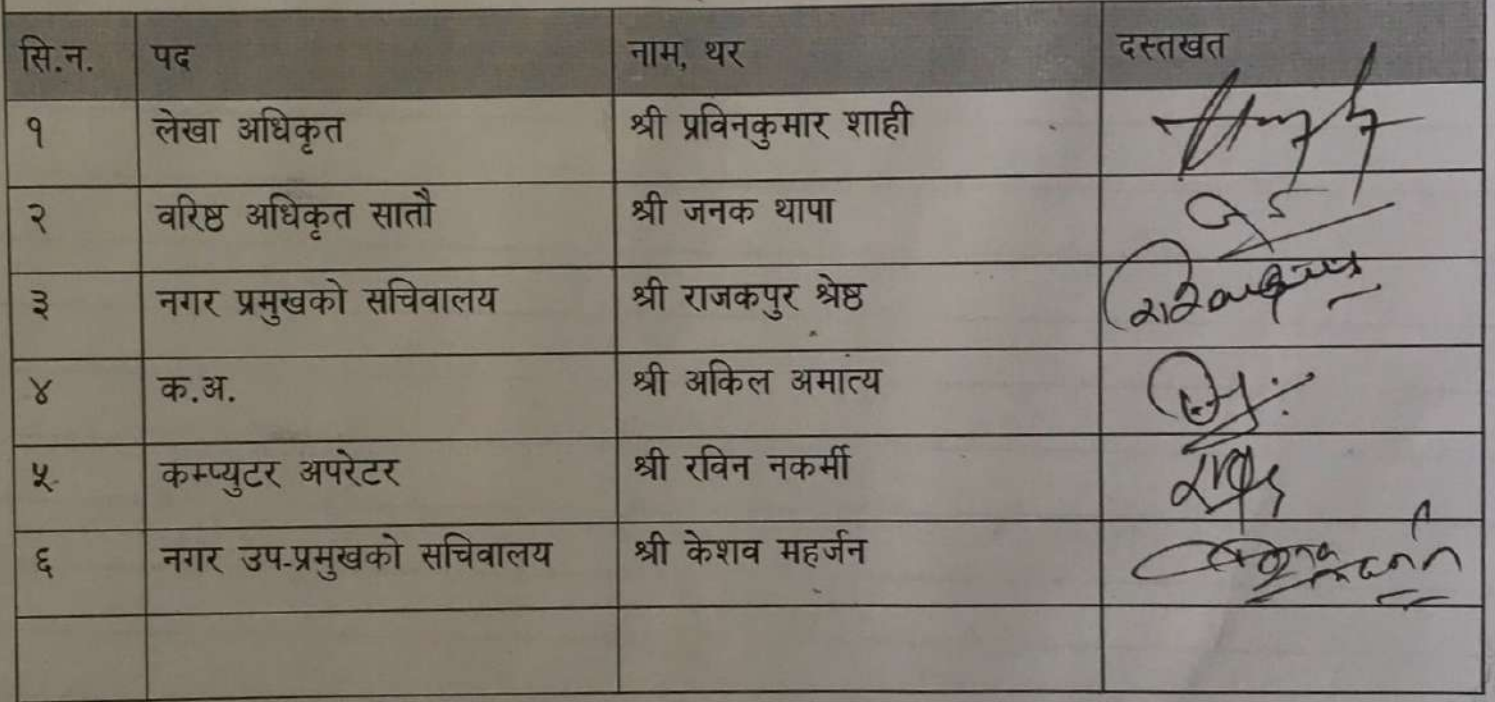 सि.न. पद नाम, थर दस्तखत
१ लेखा अधिकृत श्री प्रविनकुमार शाही
२ वरिष्ठ अधिकृत सातौ श्री जनक थापा
३ नगर प्रमुखको सचिवालय श्री राजकपुर श्रेष्ठ
४ क.अ. श्री अकिल अमात्य
५ कम्प्युटर अपरेटर श्री रविन नकर्मी
६ नगर उप-प्रमुखको सचिवालय श्री केशव महर्जन